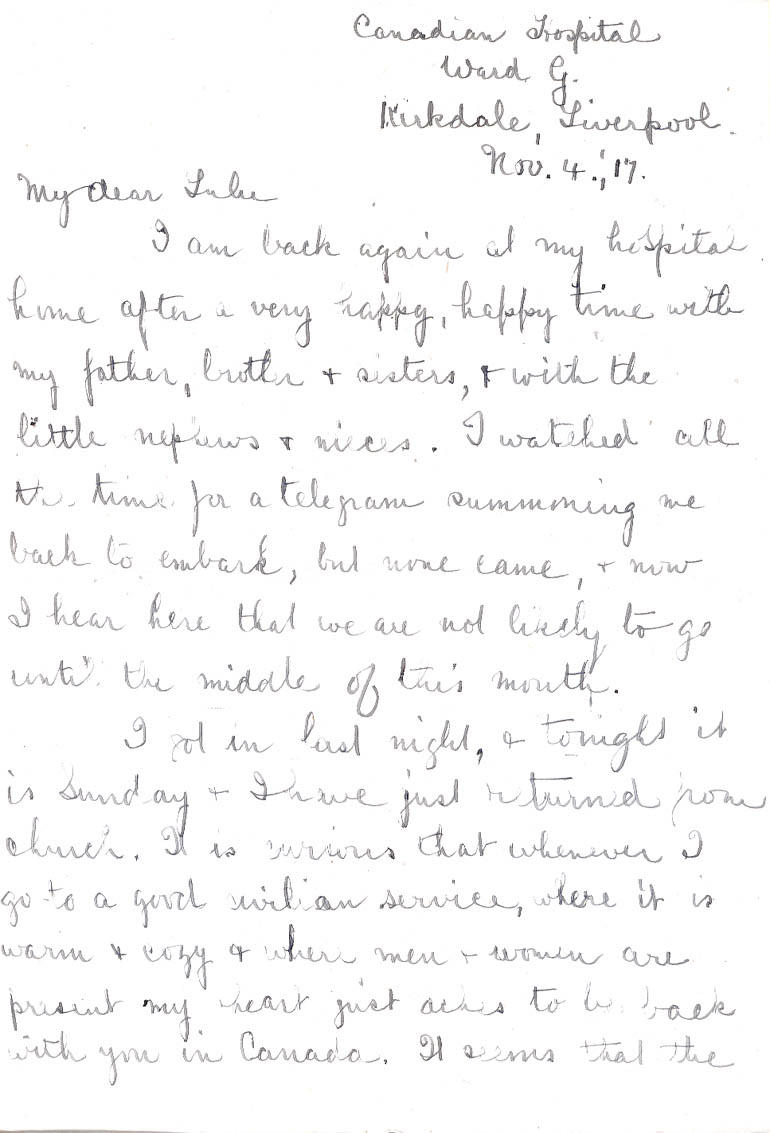 Canadian Hospital
Ward G.
Kirkdale, Liverpool.
Nov. 4., '17.
My dear Lulu
I am back again at my hospital
home after a very happy, happy time with
my father, brother + sisters, + with the
little nephews + nieces. I watched all
the time for a telegram summoning me
back to embark, but none came, + now
I hear here that we are not likely to go
until the middle of this month.
I got in last night, + tonight it
is Sunday + I have just returned from
church. It is curious that whenever I
go to a good civilian service, where it is
warm + cozy + where men + women are
present my heart just aches to be back
with you in Canada. It seems that the